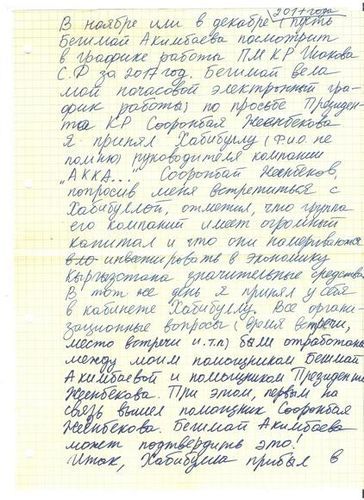 2017 года
В ноябре или в декабре (пусть
Бегимай Акимбаева посмотрит
в графике работы ПМ КР Исакова
С.Ф за 2017 год. Бегимай вела
мой почасовой электронный гра-
фик работы) по просьбе Президен-
та КР Сооронбая Жеенбекова
я принял Хабибуллу (Ф.и.о. не
помню) руководителя компании
"АККА..." Сооронбай Жеенбеков,
попросив меня встретиться с
Хабибуллой, отметил, что группа
его компаний имеет огромный
капитал и что они намереваются
инвестировать в экономику
Кыргызстана значительные средства.
В тот же день я принял у себя
в кабинете Хабибуллу. Все органи-
зационные вопросы (время встречи,
место встречи и.т.п) были отработаны
между моим помощником Бегимай
Акимбаевой и помощником Президента
Жеенбекова. При этом, первым на
связь вышел помощник Сооронбая
Жеенбекова. Бегимай Акимбаева
может подтвердить это!
Итак, Хабибулла прибыл в